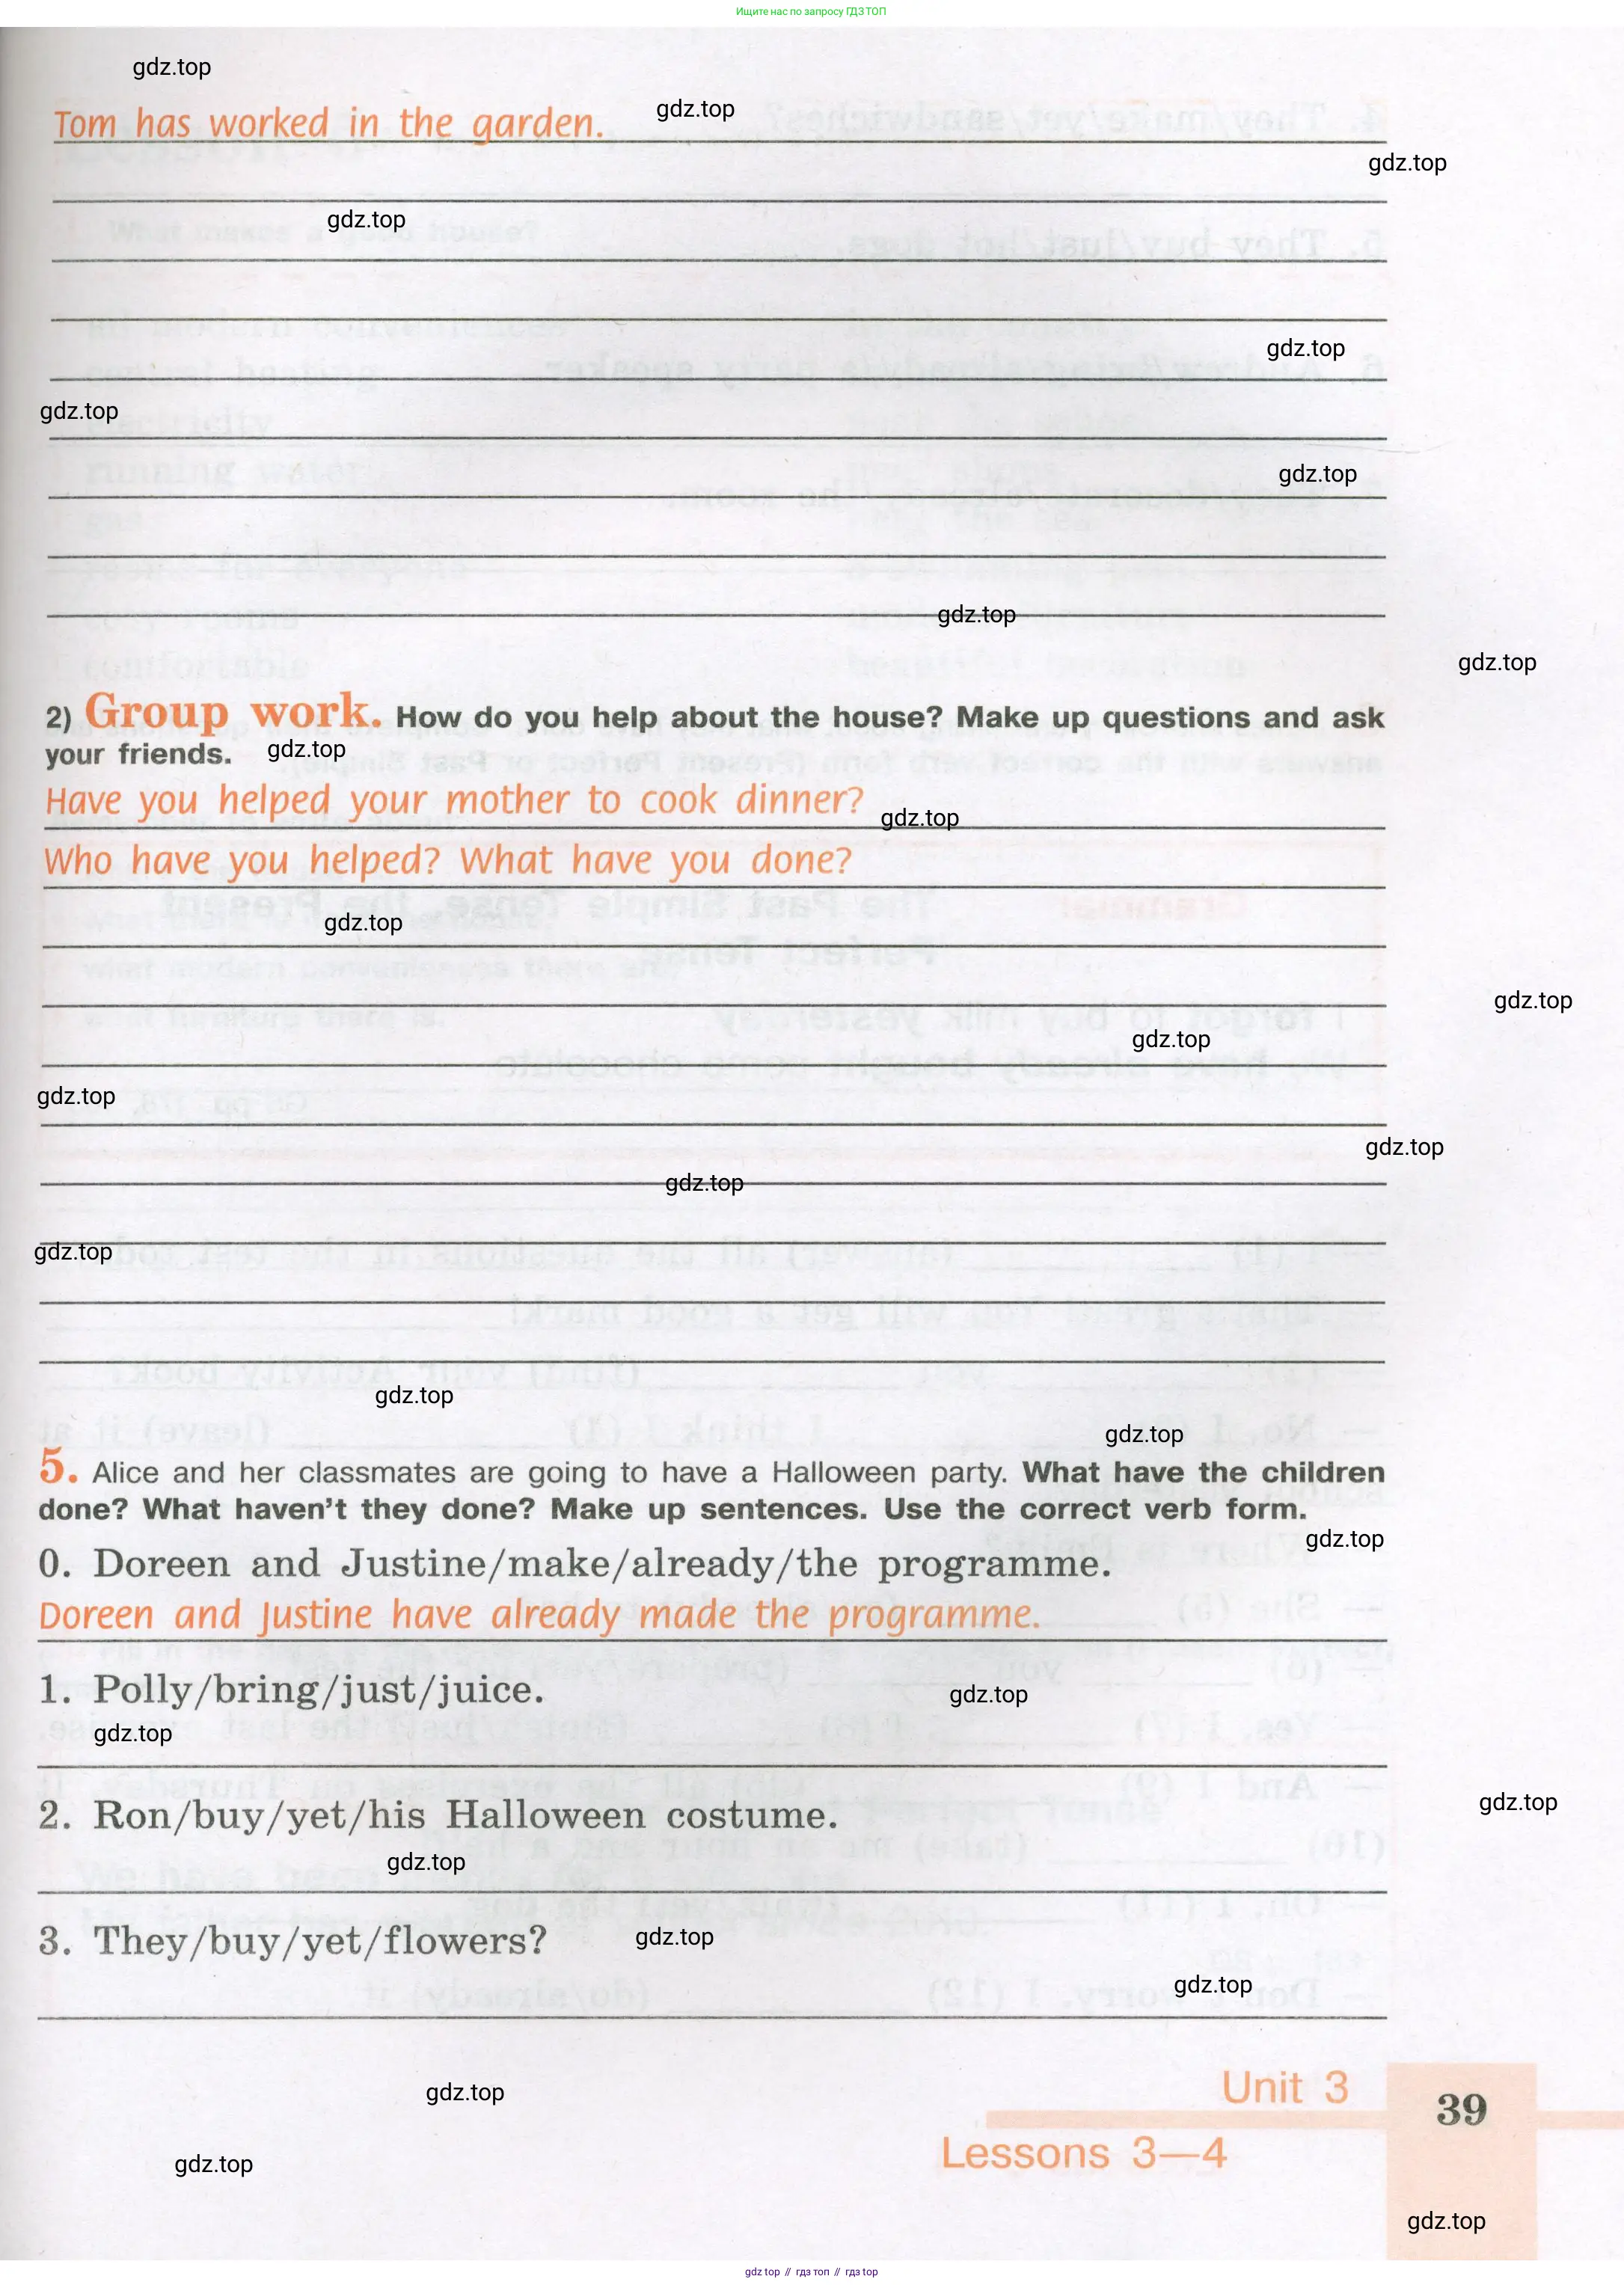 Ищите нас по запросу ГДЗ ТОП
gdz.top
Tom has worked in the garden.
gdz.top
gdz.top
gdz.top
gdz.top
gdz.top
gdz.top
gdz.top
gdz.top
2) Group work. How do you help about the house? Make up questions and ask
your friends.
gdz.top
Have you helped your mother to cook dinner?
gdz.top
Who have you helped? What have you done?
gdz.top
gdz.top
gdz.top
gdz.top
gdz.top
gdz.top
gdz.top
gdz.top
gdz.top
5. Alice and her classmates are going to have a Halloween party. What have the children
done? What haven't they done? Make up sentences. Use the correct verb form.
gdz.top
0. Doreen and Justine/make/already/the programme.
Doreen and Justine have already made the programme.
1. Polly/bring/just/juice.
gdz.top
gdz.top
gdz.top
2. Ron/buy/yet/his Halloween costume.
gdz.top
3. They/buy/yet/flowers?
gdz.top
gdz.top
Unit 3
39
gdz.top
Lessons 3—4
gdz.top
gdz.top
gdz top // гдз топ // гдз top